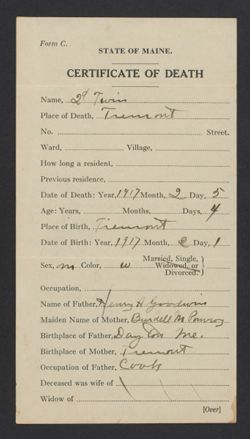 Form C.
STATE OF MAINE.
CERTIFICATE OF DEATH
Name, 2d Twin
Place of Death, Tremont
No. Street.
Ward, Village,
How long a resident,
Previous residence,
Date of Death: Year, 1917 Month, 2 Day, 5
Age: Years, Months, Days, 4
Place of Birth, Tremont
Date of Birth: Year, 1917 Month, 2 Day, 1
Sex, m Color, w Married, Single, Widowed, or Divorced.
Occupation,
Name of Father, Henry H Goodwin
Maiden Name of Mother, M
Birthplace of Father, Me.
Birthplace of Mother, Tremont
Occupation of Father, Cook
Deceased was wife of
Widow of
[Over]